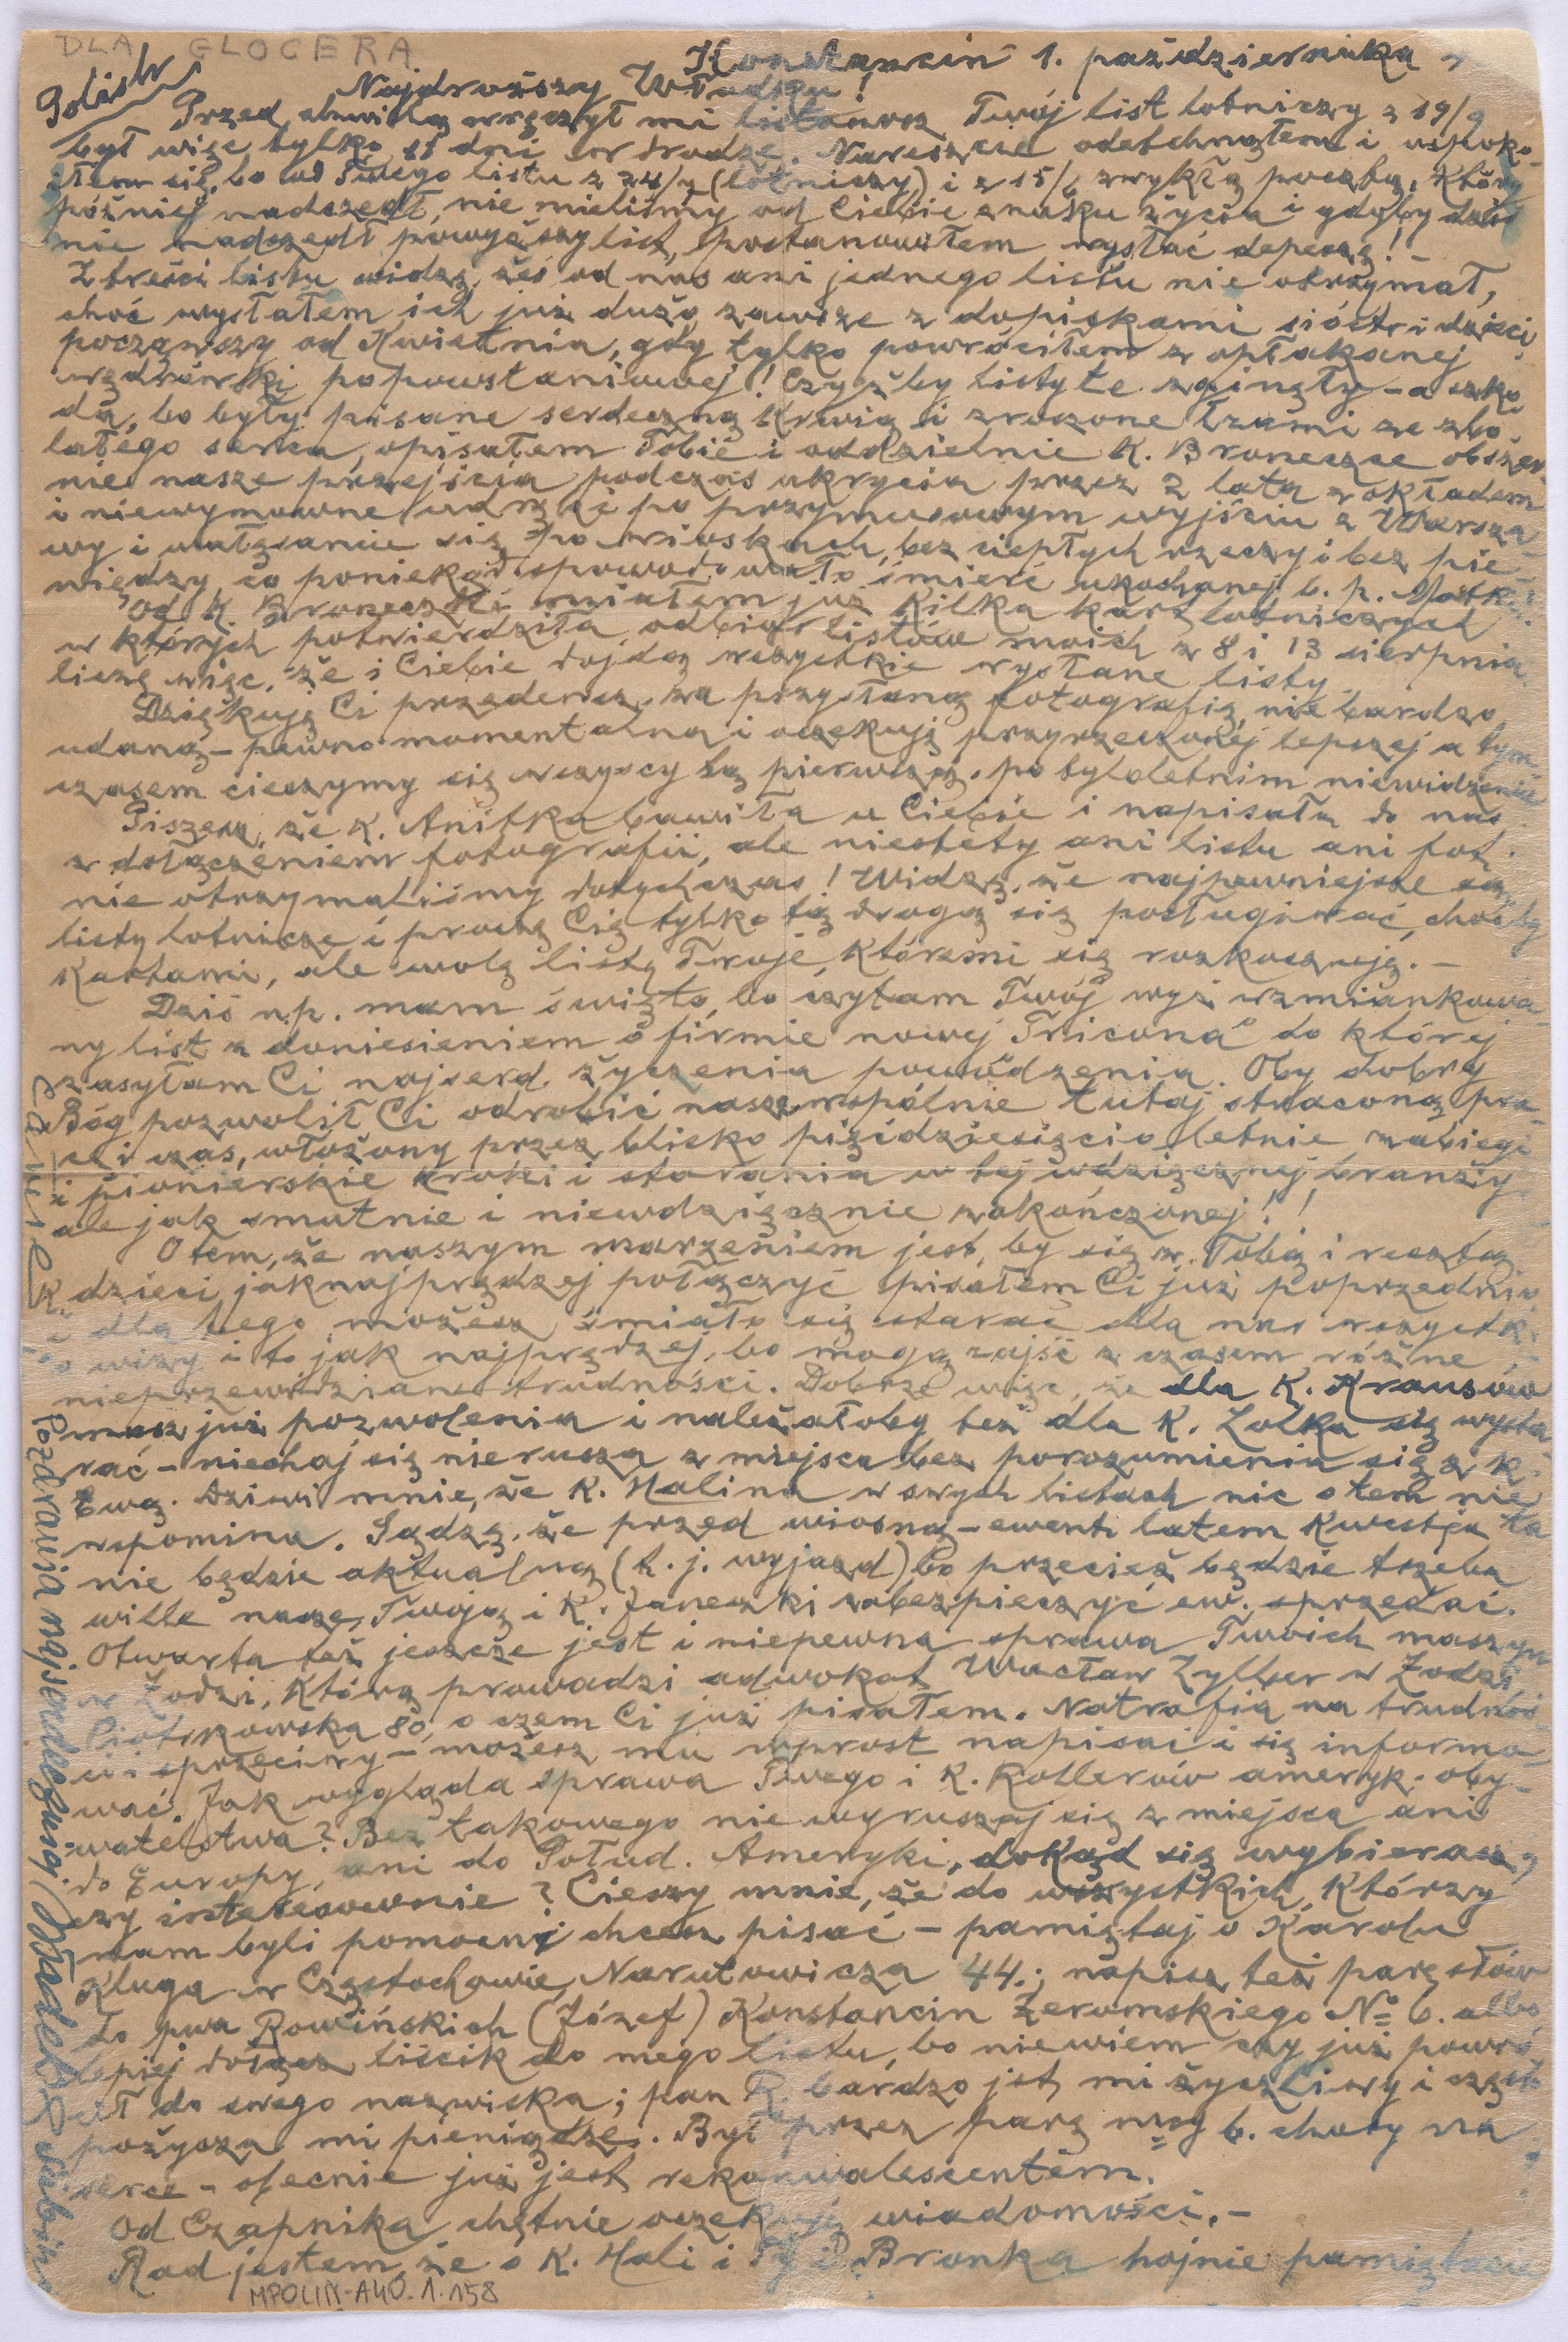 DLA GLOCERA
Konstancin 1. października
Najdroższy Władziu!
Przed chwilą wręczył mi listonosz Twój list lotniczy z 19/9
był więc tylko 11 dni w drodze. Nareszcie odetchnąłem i uspoko-
iłem się, bo od Twego listu z 24/7 (lotniczy) i z 15/6 zwykłą pocztą, który
później nadszedł, nie mieliśmy od Ciebie znaku życia i gdyby dziś
nie nadszedł powyższy list, postanowiłem wysłać depeszę! –
Z treści listu widzę, żeś od nas ani jednego listu nie otrzymał,
choć wysłałem ich już dużo zawsze z dopiskami sióstr i dzieci
począwszy od Kwietnia, gdy tylko powróciłem z opłakanej
wędrówki popowstaniowej! Czyżby listy te zginęły – a szko-
da, bo były pisane serdeczną krwią i zroszone łzami ze zbo-
lałego serca, opisałem Tobie i oddzielnie K. Broneczce obszer-
nie nasze przejścia podczas ukrycia przez 2 lata z okładem
i niewymowne udręki po przymusowym wyjściu z Warsza-
wy i wałęsanie się po wioskach, bez ciepłych rzeczy i bez pie-
niędzy, co poniekąd spowodowało śmierć ukochanej b. p. Matki.
Od K. Broneczki miałem już kilka kart lotniczych
w których potwierdziła odbiór listów moich z 8 i 13 sierpnia
liczę więc, że i Ciebie dojdą wszystkie wysłane listy.
Dziękuję Ci przedewsz. za przysłaną fotografię, nie bardzo
udaną – pewno momentalną i oczekuję przyrzeczonej lepszej a tym-
czasem cieszymy się wszyscy tą pierwszą, po tyloletnim niewidzeniu
Piszesz, że K. Anitka bawiła u Ciebie i napisała do nas
z dołączeniem fotografii, ale niestety ani listu ani fot.
nie otrzymaliśmy dotychczas! Widzę, że najpewniejsze są
listy lotnicze i proszę Cię tylko tą drogą się posługiwać, choćby
kartami, ale wolę listy Twoje, któremi się rozkoszuję. –
Dziś n.p. mam święto, bo czytam Twój wyż wzmiankowa-
ny list z doniesieniem o firmie nowej "Tricona" do której
zasyłam Ci najserd. życzenia powodzenia. Oby dobry
Bóg pozwolił Ci odrobić nasze wspólnie tutaj straconą pra-
cę i czas, włożony przez blisko pięćdziesięcio letnie zabiegi
i pionierskie kroki i starania w tej wdzięcznej branży,
ale jak smutnie i niewdzięcznie zakończonej!!
O tem, że naszym marzeniem jest, by się z Tobą i resztą
K. dzieci jaknajprędzej połączyć pisałem Ci już poprzednio
i dla tego możesz śmiało się starać dla nas wszystk.
o wizy i to jak najprędzej, bo mogą zajść z czasem różne
nieprzewidziane trudności. Dobrze więc, że dla K. Krausów
masz już pozwolenia i należałoby też dla K. Lolka się wysta-
rać – niechaj się nie rusza z miejsca bez porozumienia się z K.
Ewą. Dziwi mnie, że K. Halina w swych listach nic o tem nie
wspomina. Sądzę, że przed wiosną – ewent. latem kwestja ta
nie będzie aktualną (t. j. wyjazd) bo przecież będzie trzeba
wille naszą, Twoją i K. Janeczki zabezpieczyć ew. sprzedać.
Otwarta też jeszcze jest i niepewna sprawa Twoich maszyn
w Łodzi, którą prowadzi adwokat Wacław Zylber w Łodzi,
Piotrkowska 80, o czem Ci już pisałem. Natrafia na trudnoś-
ci i sprzeciwy – możesz mu wprost napisać i się informo-
wać. Jak wygląda sprawa Twego i K. Rollerów ameryk. oby-
watelstwa? Bez takowego nie wyruszaj się z miejsca ani
do Europy, ani do Połud. Ameryki, dokąd się wybierasz,
czy interesownie? Cieszy mnie, że do wszystkich, którzy
nam byli pomocni chcesz pisać – pamiętaj o Karolu
Kluga w Częstochowie, Narutowicza 44.; napisz też parę słów
do pwa Rowińskich (Józef) Konstancin Żeromskiego № 6. albo
lepiej dołącz liścik do mego listu, bo niewiem czy już powró-
cił do swego nazwiska; pan R. bardzo jest mi życzliwy i często
pożycza mi pieniądze. Był przez parę mcy b. chory na
serce – obecnie już jest rekonwalescentem.
Od Czapnika chętnie oczekuję wiadomości. –
Rad jestem, że o K. Hali i Bronka hojnie pamiętasz
Pozdrawia najserdeczniej
MPOLIN-A40.1.158